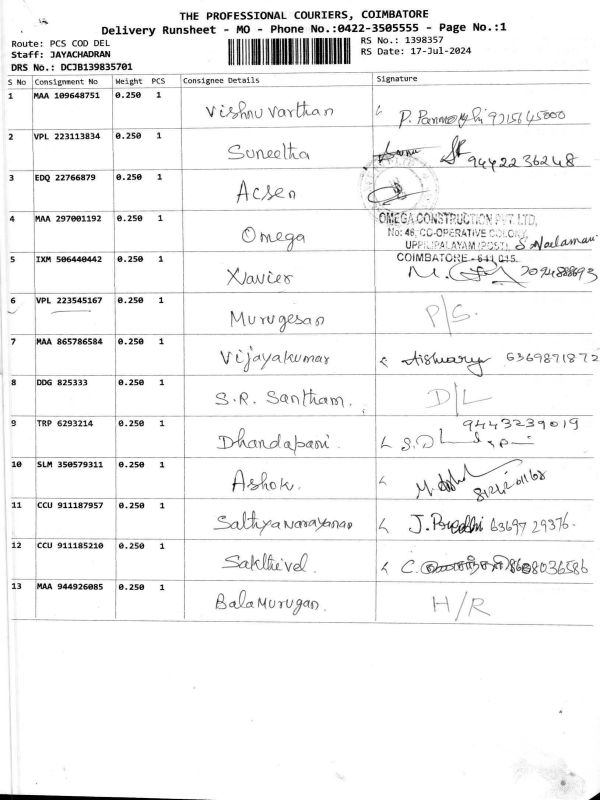 THE PROFESSIONAL COURIERS, COIMBATORE
Delivery Runsheet - MO - Phone No.:0422-3505555 - Page No.:1
Route: PCS COD DEL
Staff: JAYACHADRAN
DRS No.: DCJB139835701
RS No.: 1398357
RS Date: 17-Jul-2024
S No Consignment No Weight PCS Consignee Details Signature
1 MAA 109648751 0.250 1 Vishnu varthan 9715645000
2 VPL 223113834 0.250 1 Suneetha 9442236248
3 EDQ 22766879 0.250 1 Acsen
4 MAA 297001192 0.250 1 Omega
OMEGA CONSTRUCTION PVT. LTD,
No: 46, CO-OPERATIVE COLONY,
UPPILIPALAYAM (POST),
COIMBATORE - 641 015.
5 IXM 506440442 0.250 1 Xavier
6 VPL 223545167 0.250 1 Murugesan P/S.
7 MAA 865786584 0.250 1 Vijayakumar 6369871872
8 DDG 825333 0.250 1 S.R. Santham. D/L
9 TRP 6293214 0.250 1 Dhandapani. 9443239019
10 SLM 350579311 0.250 1 Ashok.
11 CCU 911187957 0.250 1 Sathyanarayanan 63697 29376.
12 CCU 911185210 0.250 1 Sakthivel. C. 8608036586
13 MAA 944926085 0.250 1 BalaMurugan. H/R